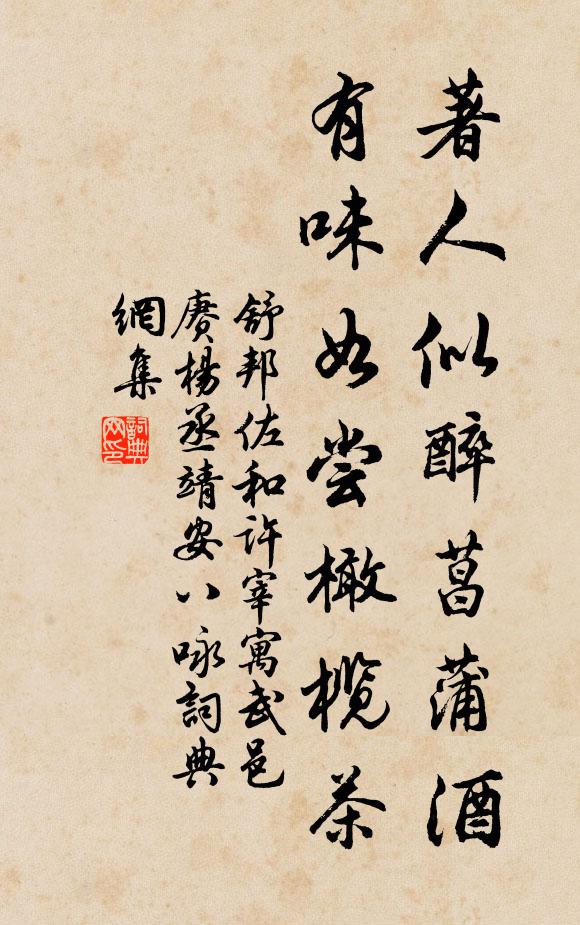 著人似醉菖蒲酒
有味如尝橄榄茶
舒邦佐和許宰寓武邑
賡楊丞靖安八咏詞典
網集
詞典
网印